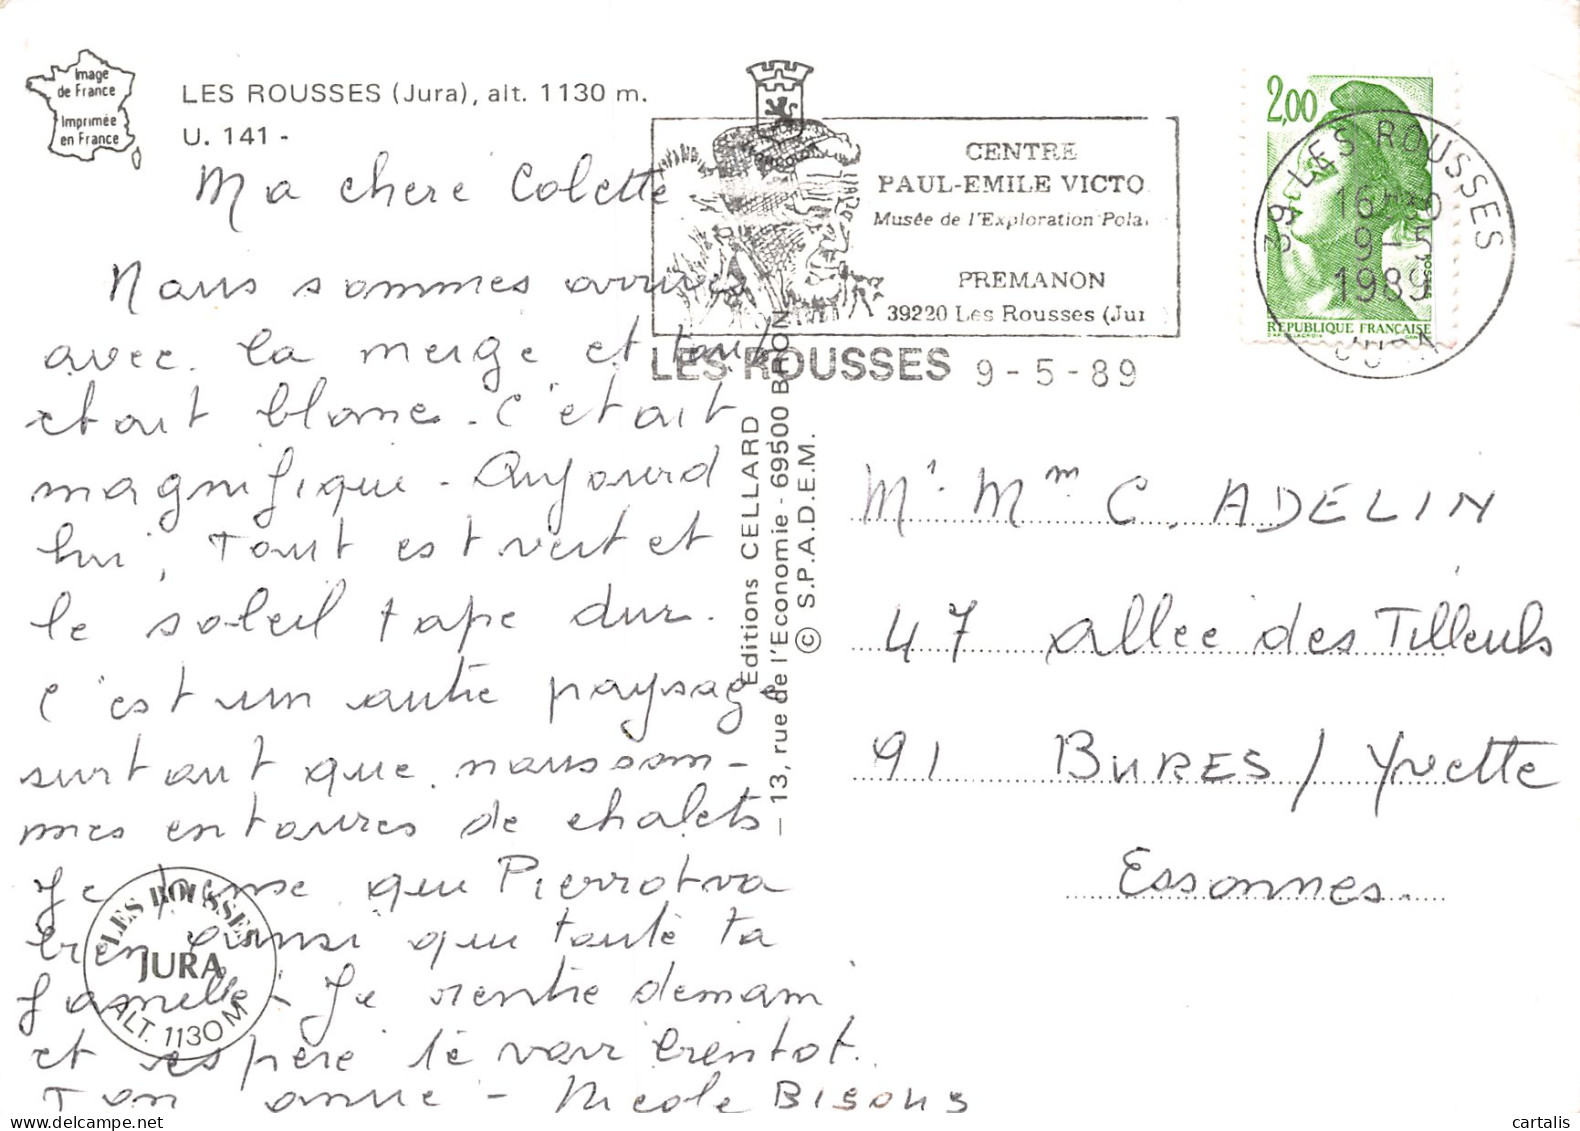 Image
de France
Imprimée
en France
LES ROUSSES (Jura), alt. 1130 m.
U. 141 -
Ma chere Colette
Nous sommes arrivés
avec la neige et tout
etait blanc. C'etait
magnifique - Aujourd
hui, Tout est vert et
le soleil tape dur.
C'est un autre paysage
surtout que nous som-
mes entourés de chalets
Je pense que Pierrot va
bien ainsi que toute ta
famille - Je rentre demain
et espère te voir bientot.
Ton amie - Nicole Bisous
LES ROUSSES
JURA
ALT. 1130 M
CENTRE
PAUL-EMILE VICTO
Musée de l'Exploration Pola
PREMANON
39220 Les Rousses (Jur
LES ROUSSES 9-5-89
2,00
REPUBLIQUE FRANÇAISE
39 LES ROUSSES
16H30
9-5
1989
JURA
Editions CELLARD
13, rue de l'Economie - 69500 BRON
© S.P.A.D.E.M.
Mr. Mme C. ADELIN
47 allée des Tilleuls
91 BURES / Yvette
Essonnes.
cartalis